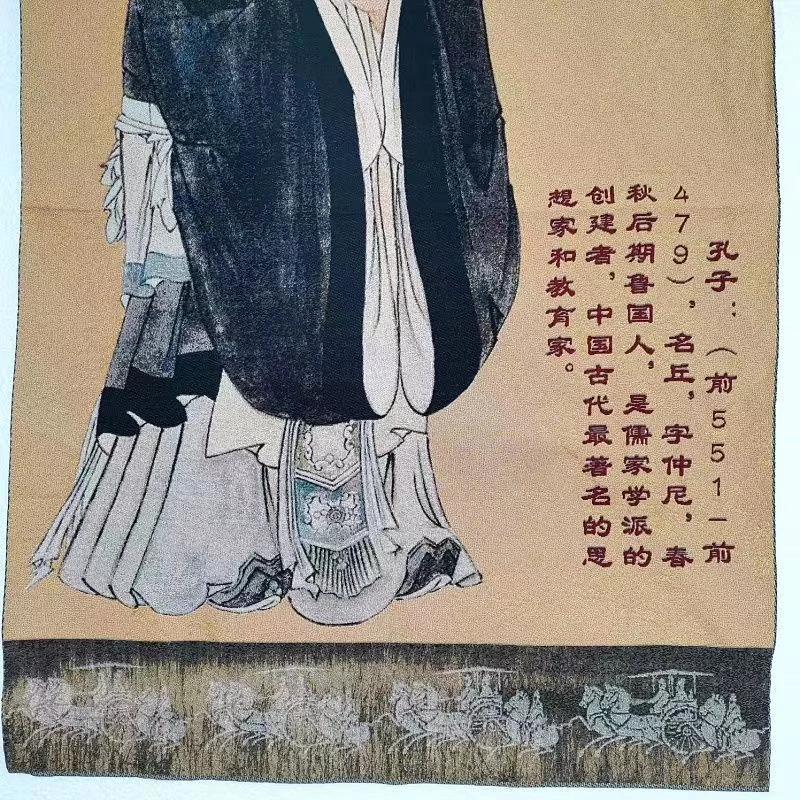 孔子：（前551－前
479），名丘，字仲尼，春
秋后期鲁国人，是儒家学派的
创建者，中国古代最著名的思
想家和教育家。